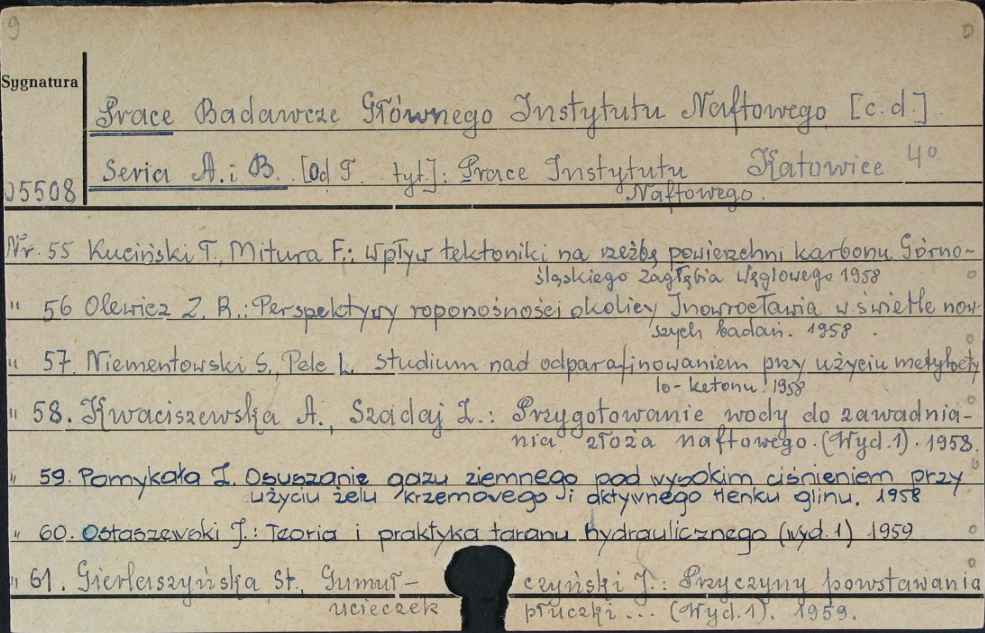 9 D
Sygnatura
Prace Badawcze Głównego Instytutu Naftowego [c.d.]
Seria A. i B. [Od T. tyt.]: Prace Instytutu Katowice 4°
05508 Naftowego.
Nr. 55 Kuciński T., Mitura F.: Wpływ tektoniki na rzeźbę powierzchni karbonu Górno-
śląskiego Zagłębia Węglowego 1958
" 56 Olewicz Z. R.: Perspektywy roponośności okolicy Inowrocławia w świetle now-
szych badań. 1958.
" 57. Niementowski S., Pele L. Studium nad odparafinowaniem przy użyciu metyloety
lo-ketonu. 1958
" 58. Kwaciszewska A., Szadaj Z.: Przygotowanie wody do zawadnia-
nia złoża naftowego. (Wyd.1). 1958.
" 59. Pomykała Z. Osuszanie gazu ziemnego pod wysokim ciśnieniem przy
użyciu żelu krzemowego i aktywnego tlenku glinu. 1958
" 60. Ostaszewski J.: Teoria i praktyka taranu hydraulicznego (wyd.1) 1959
" 61. St., Gumuł- czyński J.: Przyczyny powstawania
ucieczek płuczki... (Wyd.1). 1959.